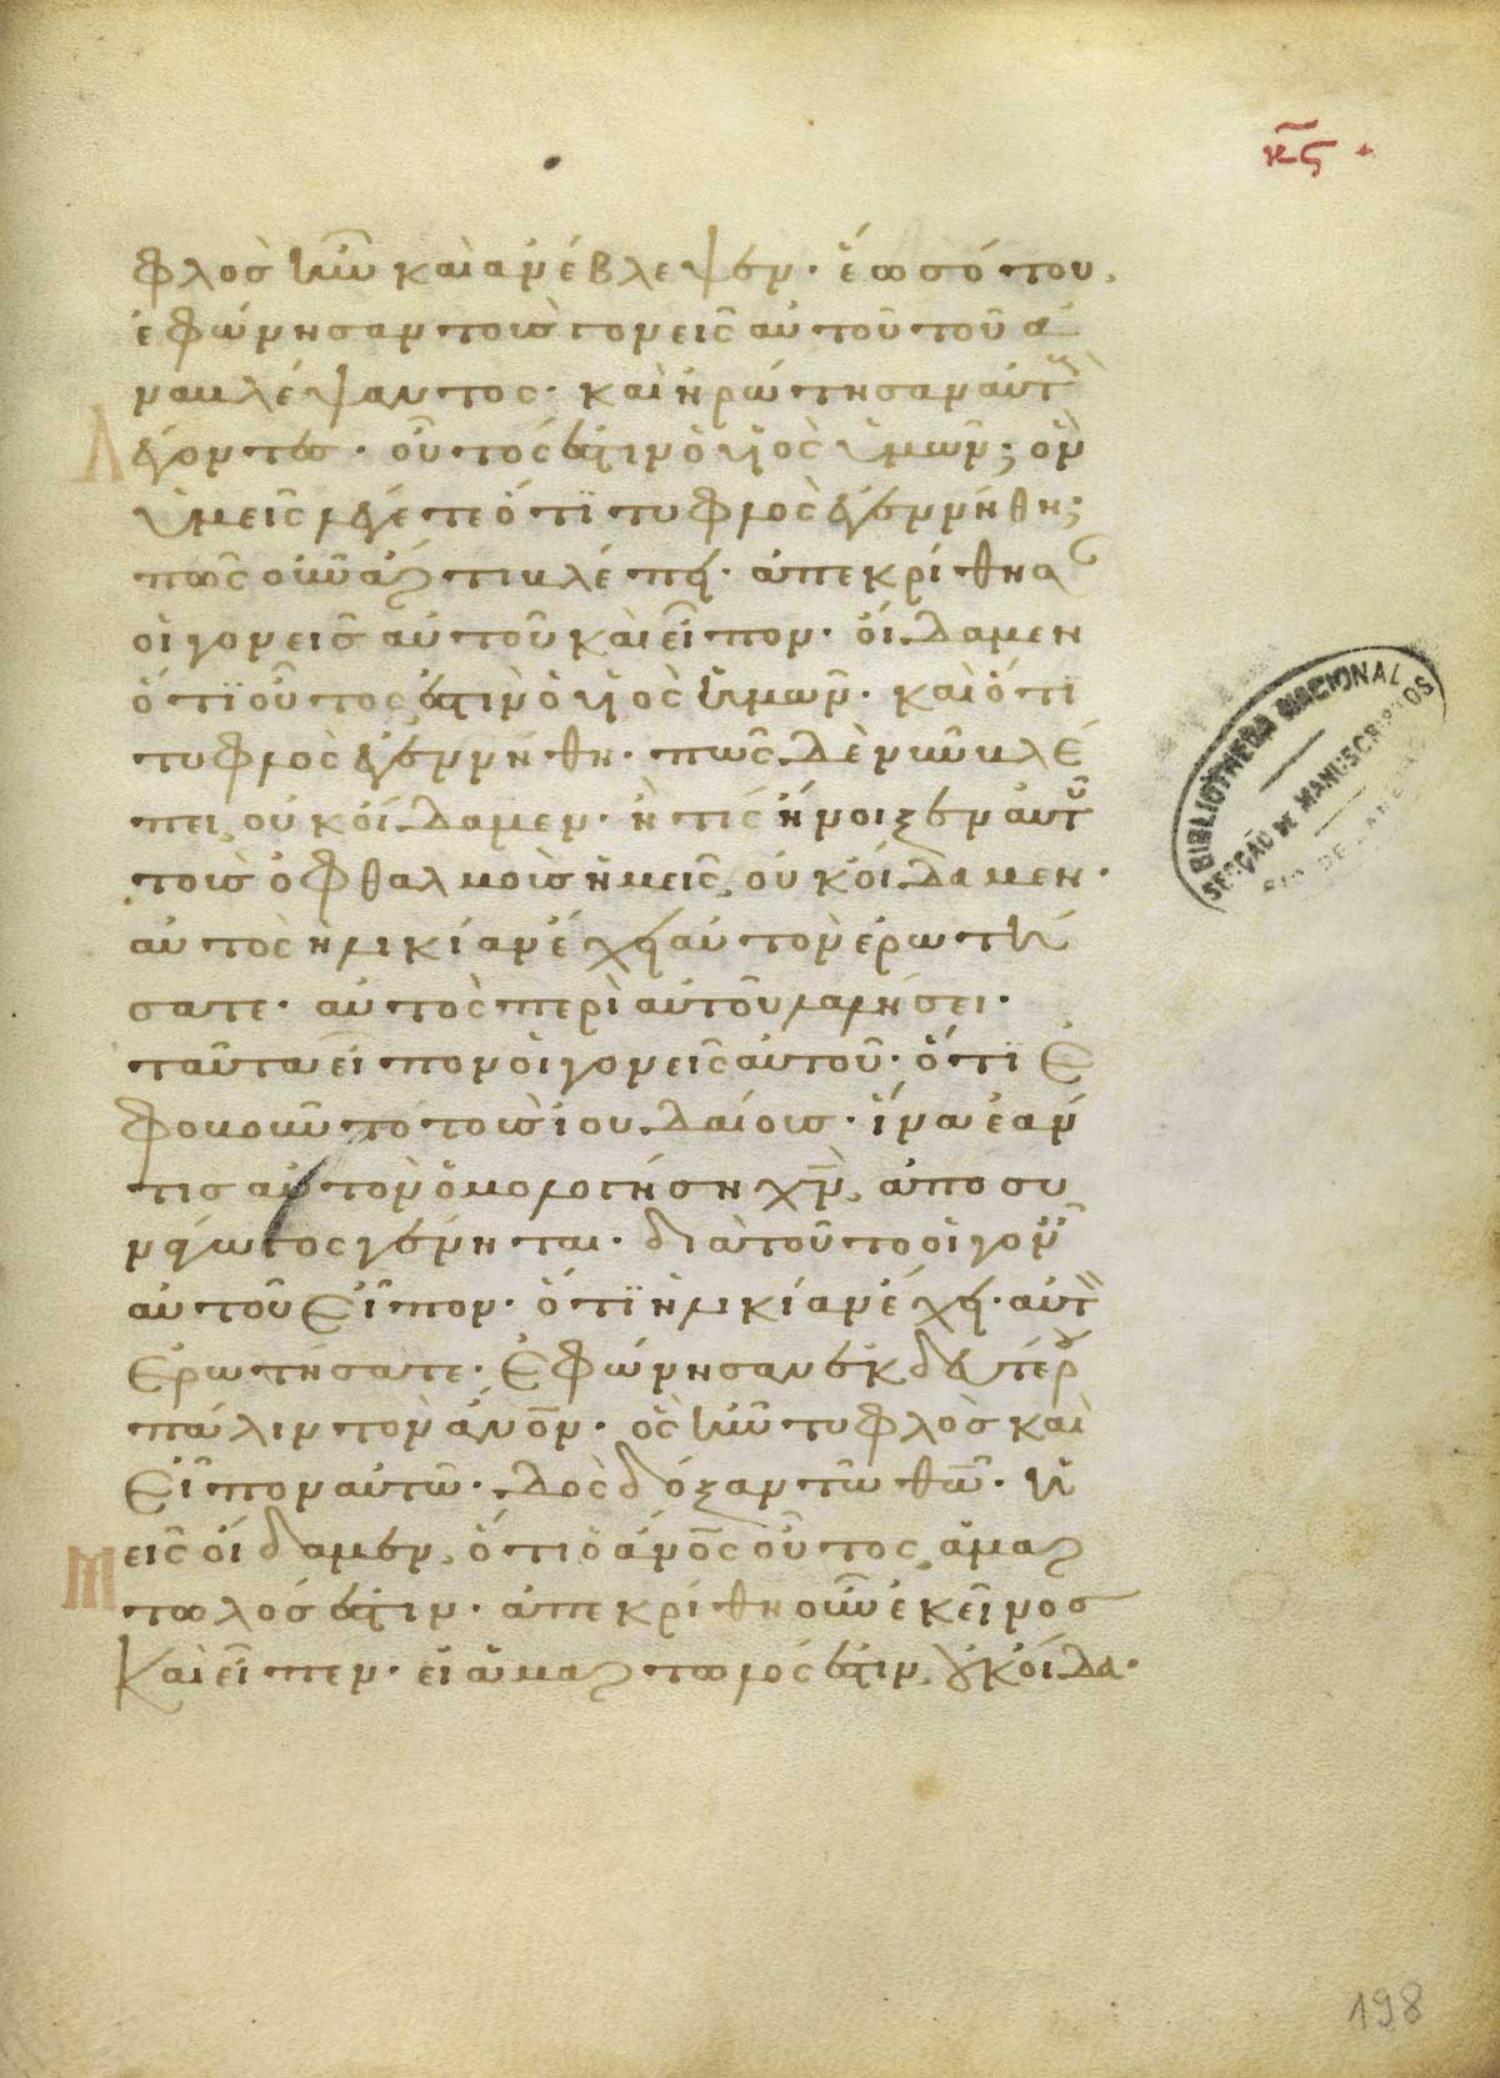 κ̅ς̅ ·
φλὸσ ἦν καὶ ἀνέβλεψεν· ἕωσ ότου,
ἐφώνησαν τοὺσ γονεῖς αὐτοῦ τοῦ ἀ
ναβλέψαντος· καὶ ἠρώτησαν αὐτ
λέγοντεσ· οὗτός ἐστιν ὁ υἱὸς ὑμῶν; ὃν
ὑμεῖς λέγετε ὅτι τυφλὸς ἐγεννήθη;
πῶς οὖν ἄρτι βλέπει· ἀπεκρίθησ
οἱ γονεῖσ αὐτοῦ καὶ εἶπον· οἴδαμεν
ὅτι οὗτος ἐστιν ὁ υἱὸς ἡμῶν· καὶ ὅτι
τυφλὸς ἐγεννήθη· πῶς δὲ νῦν βλέ
πει, οὐκ οἴδαμεν· ἢ τίς ἤνοιξεν αὐτ
τοὺσ ὀφθαλμοὺσ ἡμεῖς, οὐκ οἴδαμεν·
αὐτὸς ἡλικίαν ἔχει αὐτὸν ἐρωτή
σατε· αὐτὸς περὶ αὐτοῦ λαλήσει·
ταῦτα εἶπον οἱ γονεῖς αὐτοῦ· ὅτι ἐ
φοβοῦντο τοὺσ ἰουδαίουσ· ἵνα ἐάν
τισ αὐτὸν ὁμολογήσῃ χν̅, ἀποσυ
νάγωγος γένηται· διὰ τοῦτο οἱ γον
αὐτοῦ εἶπον· ὅτι ἡλικίαν ἔχει· αὐτ
ἐρωτήσατε· ἐφώνησαν ἐκ δευτέρου
πάλιν τὸν ἄνο̅ν· ὃς ἦν τυφλὸσ καὶ
εἶπον αὐτῶ· δὸς δόξαν τῶ θω̅· ἡ
μεῖς οἴδαμεν, ὅτι ὁ ἄνο̅ς οὗτος, ἁμαρ
τωλός ἐστιν· ἀπεκρίθη οὖν ἐκεῖνοσ
καὶ εἶπεν· εἰ ἁμαρτωλός ἐστιν, οὐκ οἶδα·
BIBLIOTHECA NACIONAL
SECÇÃO DE MANUSCRIPTOS
RIO DE JANEIRO
198